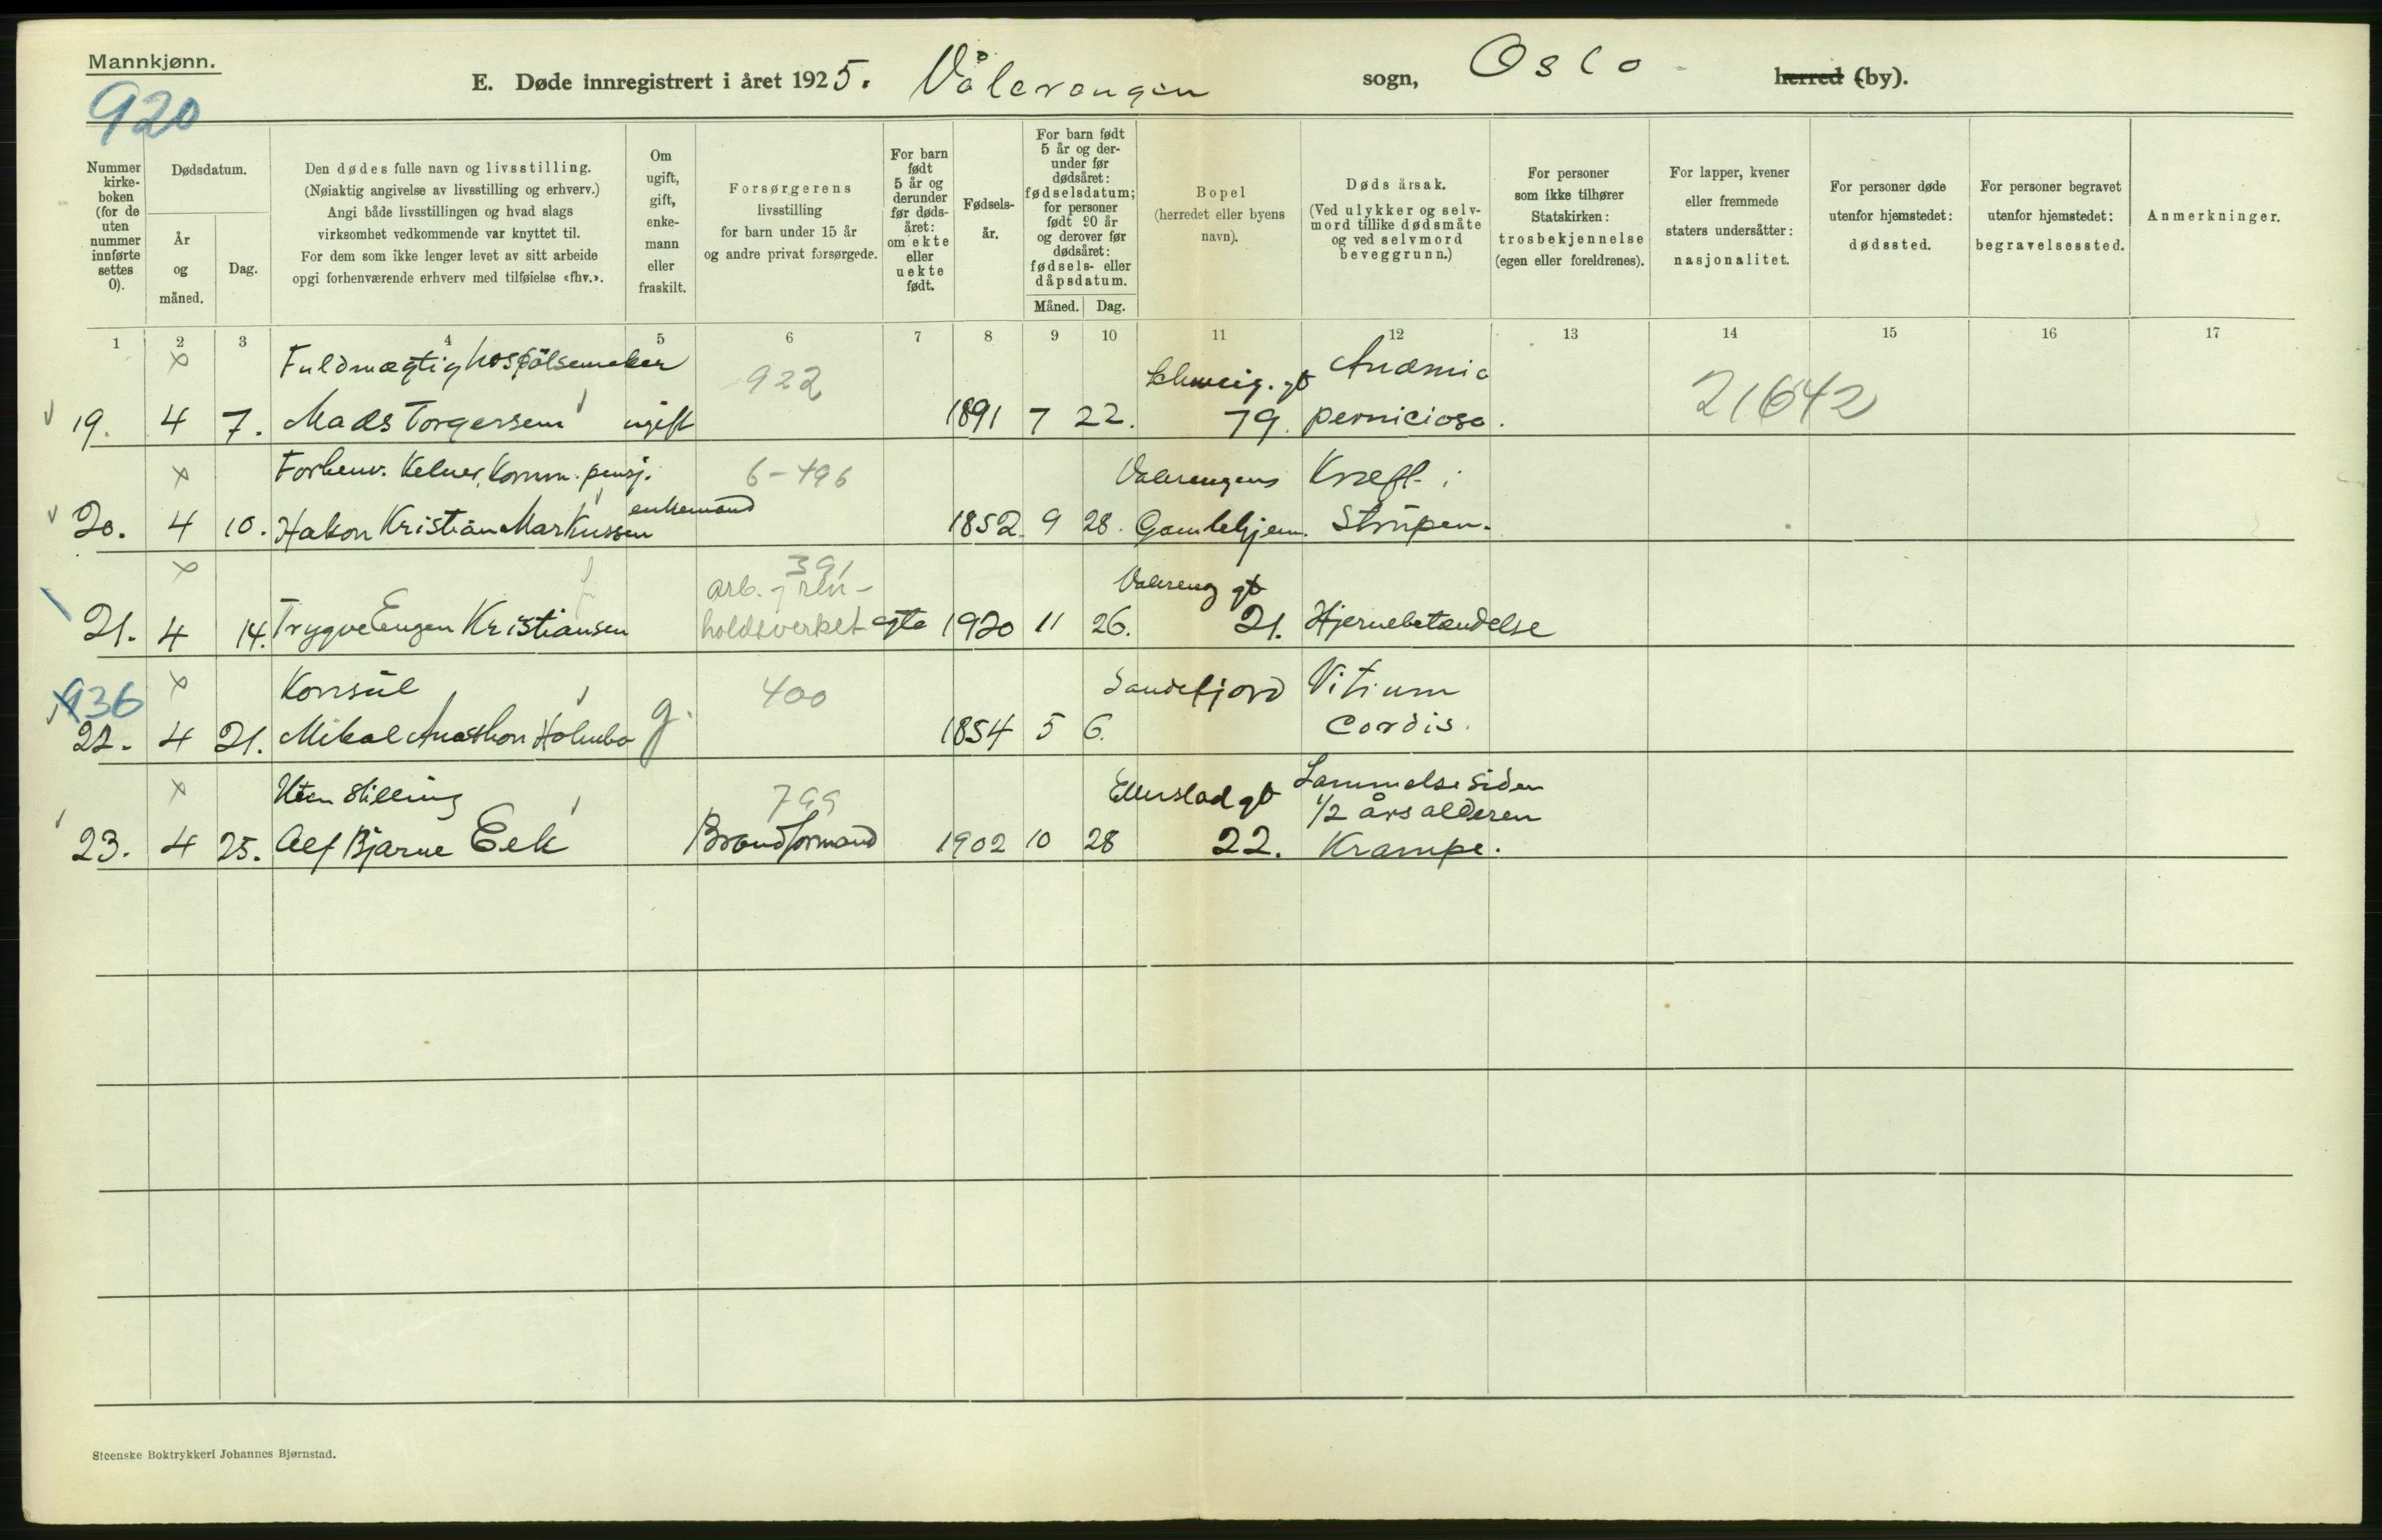 Mannkjønn.
920
E. Døde innregistrert i året 1925. Vålerengen sogn, Oslo herred (by).
Nummer kirke-boken (for de uten nummer innførte settes 0).
Dødsdatum.
År og måned.
Dag.
Den dødes fulle navn og livsstilling.
(Nøiaktig angivelse av livsstilling og erhverv.)
Angi både livsstillingen og hvad slags
virksomhet vedkommende var knyttet til.
For dem som ikke lenger levet av sitt arbeide
opgi forhenværende erhverv med tilføielse «fhv.».
Om ugift, gift, enke-mann eller fraskilt.
Forsørgerens
livsstilling
for barn under 15 år
og andre privat forsørgede.
For barn født 5 år og derunder før døds-året: om ekte eller uekte født.
Fødsels-år.
For barn født 5 år og der-under før dødsåret: fødselsdatum; for personer født 90 år og derover før dødsåret: fødsels- eller dåpsdatum.
Måned. Dag.
Bopel
(herredet eller byens navn).
Dødsårsak.
(Ved ulykker og selv-mord tillike dødsmåte og ved selvmord beveggrunn.)
For personer
som ikke tilhører
Statskirken:
trosbekjennelse
(egen eller foreldrenes).
For lapper, kvener
eller fremmede
staters undersåtter:
nasjonalitet.
For personer døde
utenfor hjemstedet:
dødssted.
For personer begravet
utenfor hjemstedet:
begravelsessted.
Anmerkninger.
1 2 3 4 5 6 7 8 9 10 11 12 13 14 15 16 17
× Fuldmægtig hos pölsemaker 922 Schweig. gt Anæmia 21642
19. 4 7. Mads Torgersen ugift 1891 7 22. 79. perniciosa.
× Forhenv. Kelner, Komm. pensj. 6-496 Valerengens Kræft i
20. 4 10. Hakon Kristian Markussen enkemand 1852. 9 28. Gamlehjem. Strupen.
× 391 arb. i ren- Valereng gt
21. 4 14. Trygve Eugen Kristiansen holdsverket egte 1920 11 26. 21. Hjernebetændelse
936 × Konsul 400 Sandefjord Vitium
22. 4 21. Mikal Anathon Holmbo g. 1854 5 6. Cordis.
× Uten stilling 799 Ellerslad gt Lammelse siden
1/2 års alderen
23. 4 25. Alf Bjarne Eek Brandformand 1902 10 28 22. Krampe.
Steenske Boktrykkeri Johannes Bjørnstad.